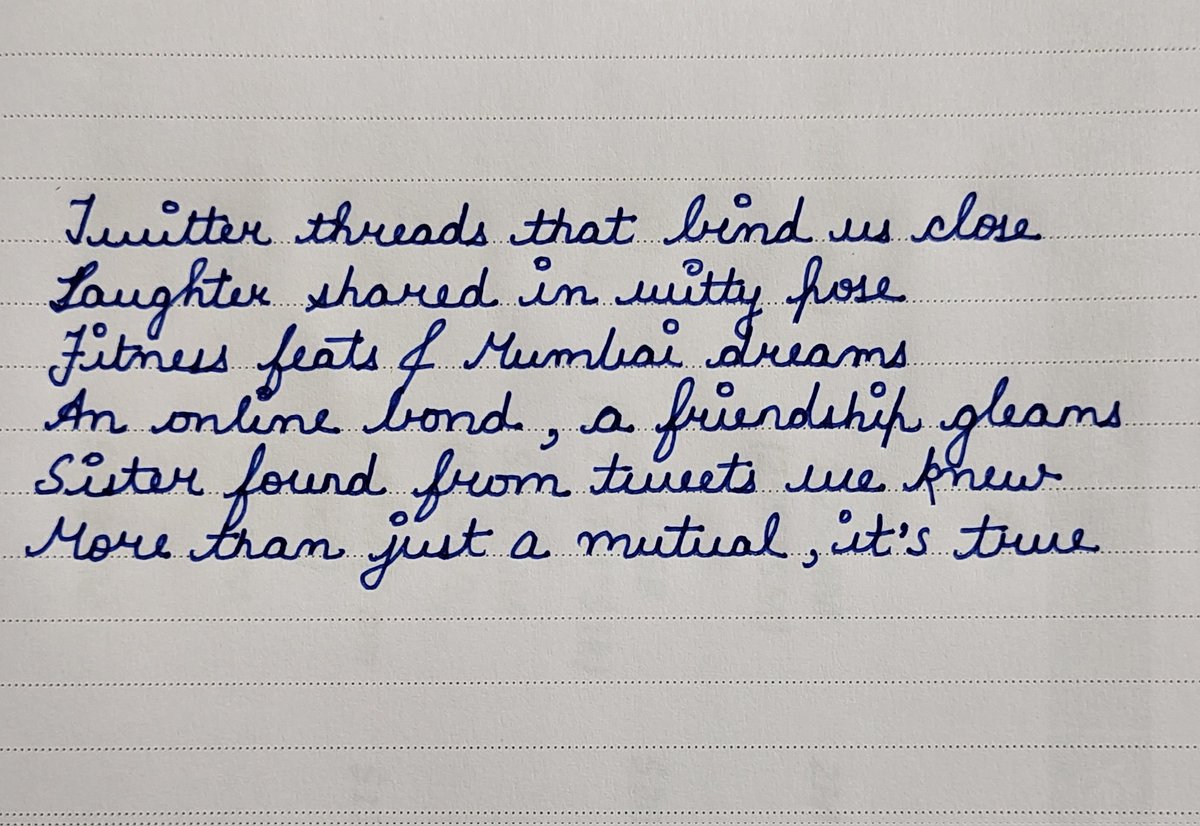 Twitter threads that bind us close
Laughter shared in witty pose
Fitness feats & Mumbai dreams
An online bond, a friendship gleams
Sister found from tweets we knew
More than just a mutual, it's true